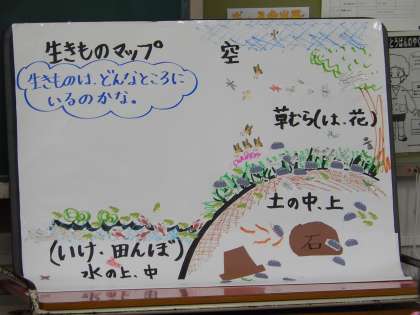 生きものマップ
生きものは、どんなところに
いるのかな。
空
草むら(は、花)
土の中、上
石
(いけ、田んぼ)
水の上、中